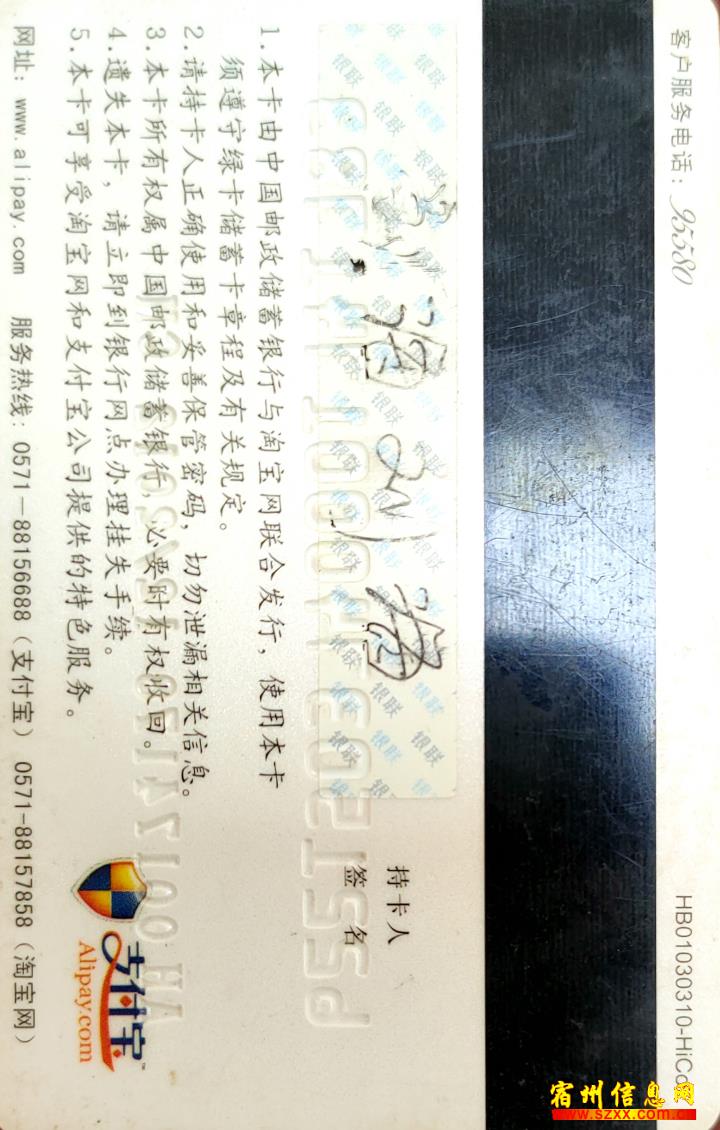 客户服务电话：95580
HB01030310-HiCo
持卡人
签名
1.本卡由中国邮政储蓄银行与淘宝网联合发行，使用本卡
须遵守绿卡储蓄卡章程及有关规定。
2.请持卡人正确使用和妥善保管密码，切勿泄漏相关信息。
3.本卡所有权属中国邮政储蓄银行，必要时有权收回。
4.遗失本卡，请立即到银行网点办理挂失手续。
5.本卡可享受淘宝网和支付宝公司提供的特色服务。
支付宝™
Alipay.com
网址：www.alipay.com 服务热线：0571-88156688（支付宝）0571-88157858（淘宝网）
宿州信息网
www.szxx.com.cn